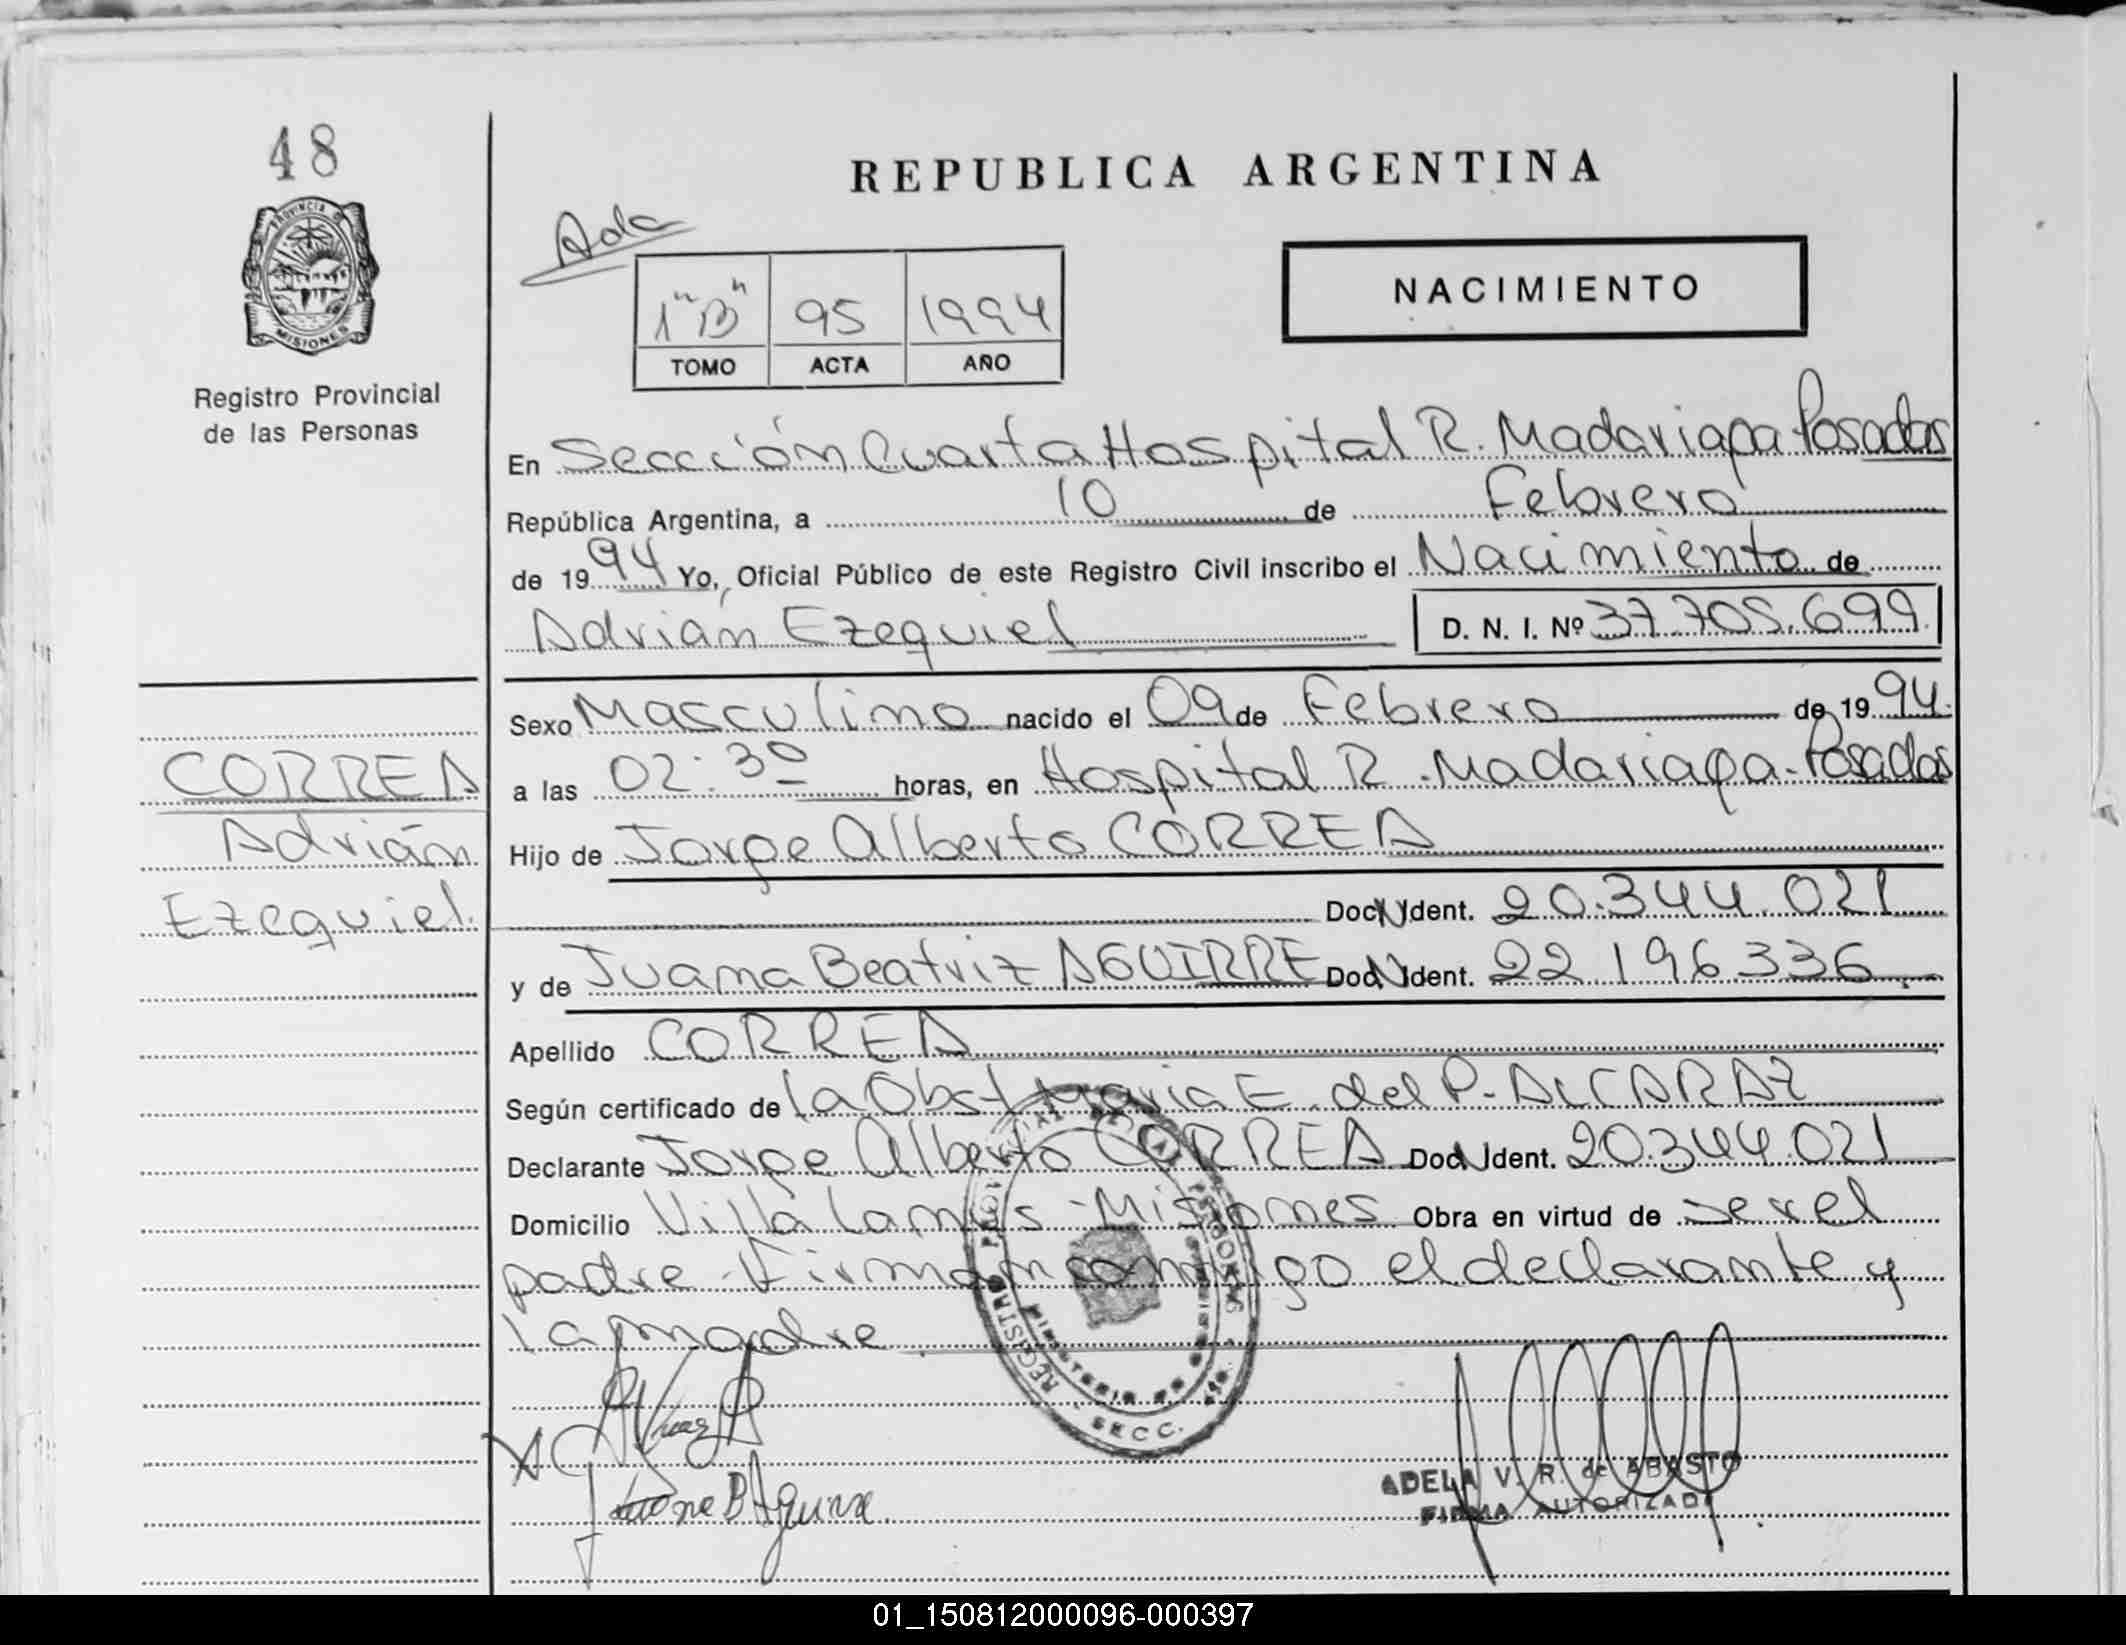 48
PROVINCIA DE
MISIONES
Registro Provincial
de las Personas
REPUBLICA ARGENTINA
Ada
1"B" 95 1994
TOMO ACTA AÑO
NACIMIENTO
En Sección Cuarta Hospital R. Madariaga Posadas
República Argentina, a 10 de Febrero
de 1994 Yo, Oficial Público de este Registro Civil inscribo el Nacimiento de
Adrián Ezequiel D. N. I. Nº 37.705.699
Sexo Masculino nacido el 09 de Febrero de 1994.
a las 02:30 horas, en Hospital R. Madariaga - Posadas
Hijo de Jorge Alberto CORREA
Doc. Ident. 20.344.021
y de Juana Beatriz AGUIRRE Doc. Ident. 22196336
Apellido CORREA
Según certificado de la Obst María E. del P. ALCARAZ
Declarante Jorge Alberto CORREA Doc. Ident. 20.344.021
Domicilio Villa Lanús - Misiones Obra en virtud de ser el
padre - Firman conmigo el declarante y
la madre
CORREA
Adrián
Ezequiel.
REGISTRO PROVINCIAL DE LAS PERSONAS
MINISTERIO DE
SECC.
B Aguirre
ADELA V. R. de ABASTO
FIRMA AUTORIZADA
01_150812000096-000397